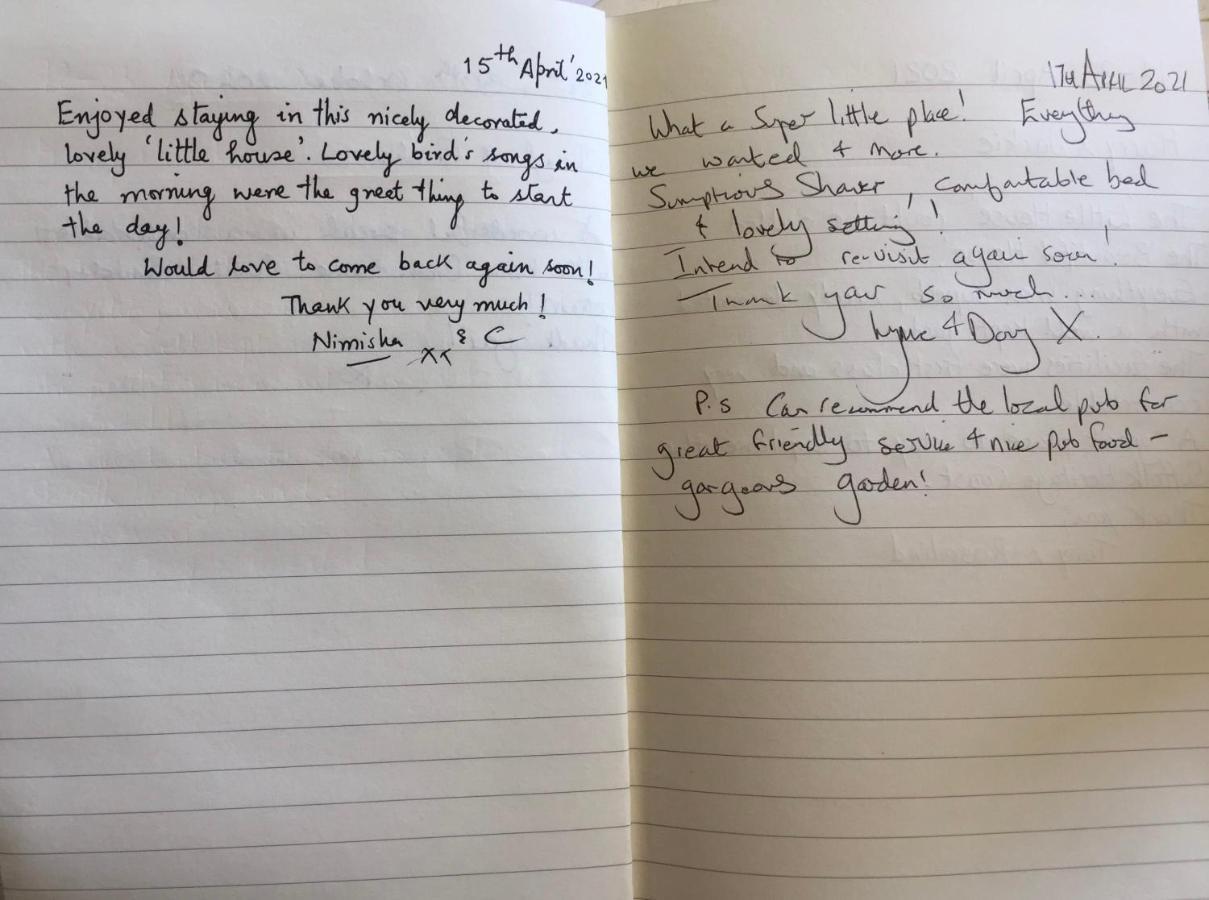 15th April' 2021
Enjoyed staying in this nicely decorated,
lovely 'little house'. Lovely bird's songs in
the morning were the greet thing to start
the day!
Would love to come back again soon!
Thank you very much!
Nimisha xx & C
17th APRIL 2021
What a Super little place! Everything
we wanted & more.
Sumptious Shower, comfortable bed
& lovely setting!
Intend to re-visit again soon!
Thank you so much...
Lynne & Doug X.
P.s Can recommend the local pub for
great friendly service & nice pub food -
gorgeous garden!